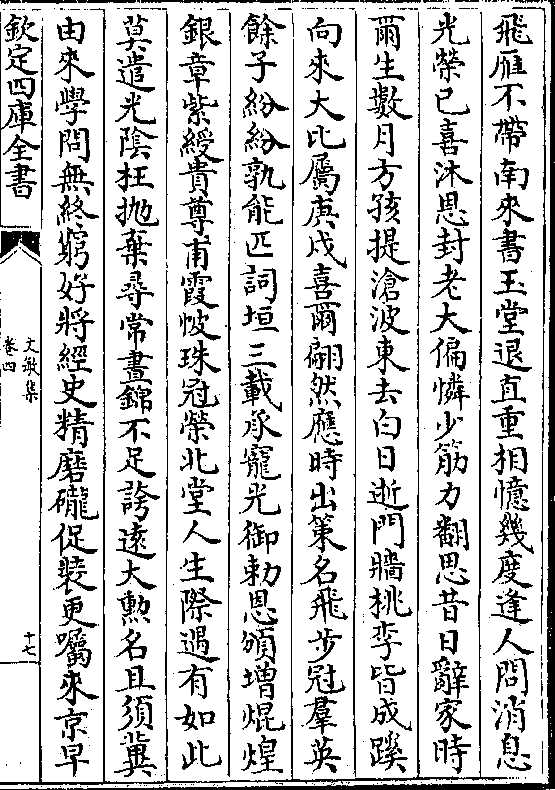 飛雁不帶南來書玉堂退直重相憶幾度逢人問消息
光榮已喜沐恩封老大偏憐少筋力翻思昔日辭家時
爾生數月方孩提滄波東去白日逝門牆桃李皆成蹊
向來大比屬庚戌喜爾翩然應時出策名飛步冠羣英
餘子紛紛孰能匹詞垣三載承寵光御勅恩頒增焜煌
銀章紫綬貴尊甫霞帔珠冠榮北堂人生際遇有如此
莫遣光陰枉抛棄尋常晝錦不足誇遠大勲名且須冀
由來學問無終窮好將經史精磨礲促裝更囑來京早
欽定四庫全書
文敏集
卷四
十七